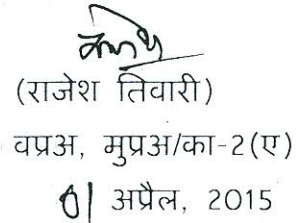 (राजेश तिवारी)
वप्रअ, मुप्रअ/का-2(ए)
01 अप्रैल, 2015